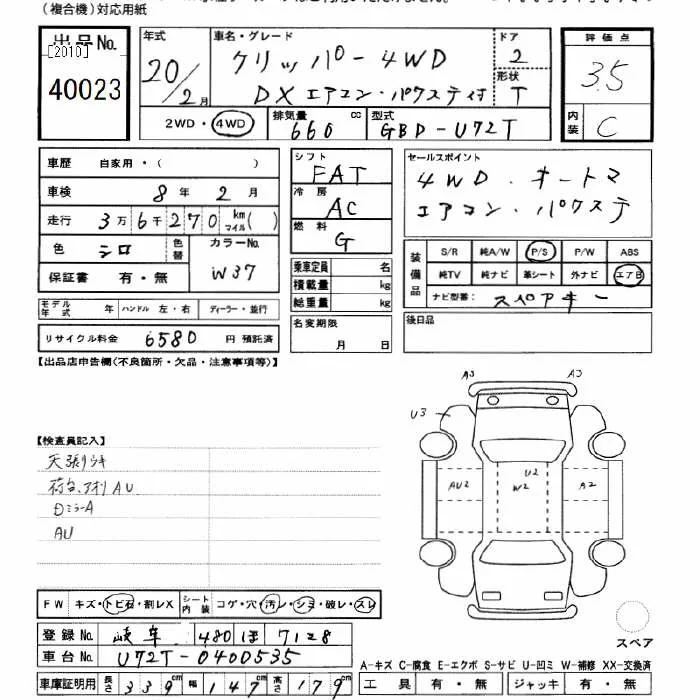 (複合機)対応用紙
出品No.
[2010]
40023
年式
20/2月
車名・グレード
クリッパー 4WD
DX エアコン・パワステ付
ドア
2
形状
T
評価点
3.5
内装
C
2WD・4WD
排気量
660 cc
型式
GBD-U72T
車歴 自家用・( )
車検 8年 2月
走行 3万6千270 km マイル( )
色 シロ 色替 カラーNo. W37
保証書 有・無
シフト
FAT
冷房
AC
燃料
G
セールスポイント
4WD・オートマ
エアコン・パワステ
装備品
S/R 純A/W P/S P/W ABS
純TV 純ナビ 革シート 外ナビ エアB
ナビ型番: スペアキー
乗車定員 名
積載量 kg
総重量 kg
モデル年式 年 ハンドル 左・右 ディーラー・並行
リサイクル料金 6580 円 預託済
名変期限
月 日
後日品
【出品店申告欄(不良箇所・欠品・注意事項等)】
A3
U3
【検査員記入】
天張りキ
荷台、アオリ AU
DミラーA
AU
AU2
U2
W2
A2
FW キズ・トビ石・割レX シート内装 コゲ・穴・汚レ・シミ・破レ・スレ
登録No. 岐阜 480 ほ 7128
車台No. U72T-0400535
車庫証明用 長さ 339cm 幅 147cm 高さ 179cm
スペア
A-キズ C-腐食 E-エクボ S-サビ U-凹ミ W-補修 XX-交換済
工具 有・無 ジャッキ 有・無